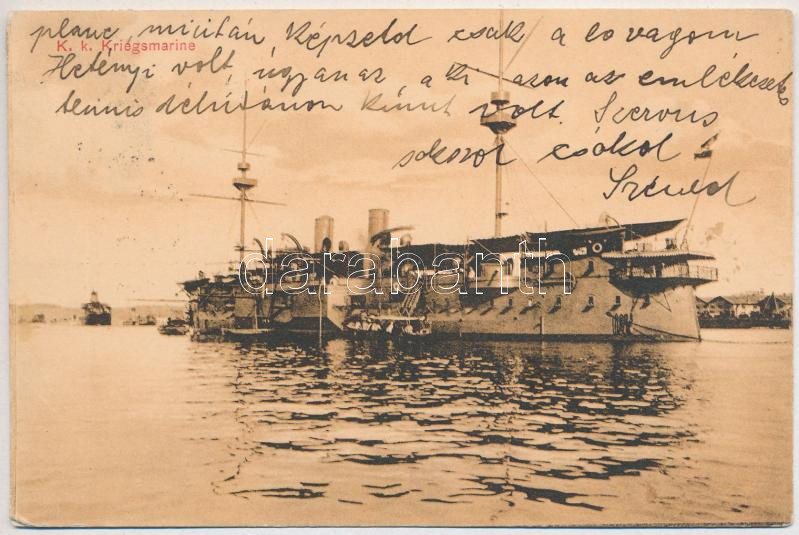 planc, miután, képzeld csak a lovagom
K. k. Kriegsmarine
Hetényi volt, ugyanaz aki azon az emlékezetes
tennis délutánon künnt volt. Szervus
sokszor csókol
darabanth